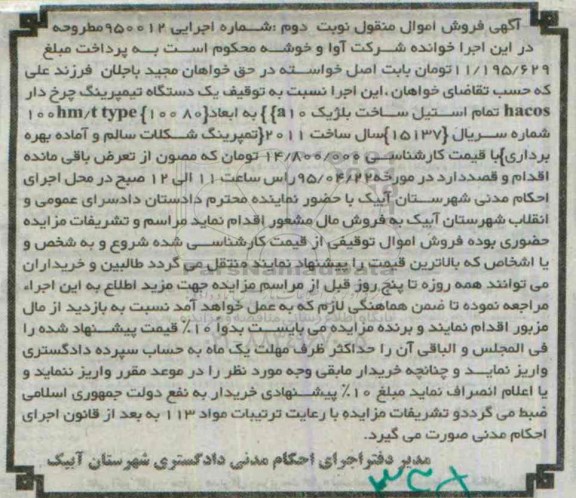 آگهی فروش اموال منقول نوبت دوم :شماره اجرایی ۹۵۰۰۱۲مطروحه
در این اجرا خوانده شرکت آوا و خوشه محکوم است به پرداخت مبلغ
۱۱/۱۹۵/۶۲۹تومان بابت اصل خواسته در حق خواهان مجید باجلان فرزند علی
که حسب تقاضای خواهان ،این اجرا نسبت به توقیف یک دستگاه تیمپرینگ چرخ دار
hacos تمام استیل ساخت بلژیک a۱۰}} به ابعاد{۸۰ ۱۰۰} ۱۰۰hm/t type
شماره سریال {۱۵۱۳۷}سال ساخت ۲۰۱۱{تمپرینگ شکلات سالم و آماده بهره
برداری}با قیمت کارشناسی ۱۴/۸۰۰/۰۰۰ تومان که مصون از تعرض باقی مانده
اقدام و قصددارد در مورخه۹۵/۰۴/۲۲راس ساعت ۱۱ الی ۱۲ صبح در محل اجرای
احکام مدنی شهرستان آبیک با حضور نماینده محترم دادستان دادسرای عمومی و
انقلاب شهرستان آبیک به فروش مال مشعور اقدام نماید مراسم و تشریفات مزایده
حضوری بوده فروش اموال توقیفی از قیمت کارشناسی شده شروع و به شخص و
یا اشخاص که بالاترین قیمت را پیشنهاد نمایند منتقل می گردد طالبین و خریداران
می توانند همه روزه تا پنج روز قبل از مراسم مزایده جهت مزید اطلاع به این اجراء
مراجعه نموده تا ضمن هماهنگی لازم که به عمل خواهد آمد نسبت به بازدید از مال
مزبور اقدام نمایند و برنده مزایده می بایست بدوا ۱۰٪ قیمت پیشنهاد شده را
فی المجلس و الباقی آن را حداکثر ظرف مهلت یک ماه به حساب سپرده دادگستری
واریز نماید و چنانچه خریدار مابقی وجه مورد نظر را در موعد مقرر واریز ننماید و
یا اعلام انصراف نماید مبلغ ۱۰٪ پیشنهادی خریدار به نفع دولت جمهوری اسلامی
ضبط می گرددو تشریفات مزایده با رعایت ترتیبات مواد ۱۱۳ به بعد از قانون اجرای
احکام مدنی صورت می گیرد.
مدیر دفتراجرای احکام مدنی دادگستری شهرستان آبیک